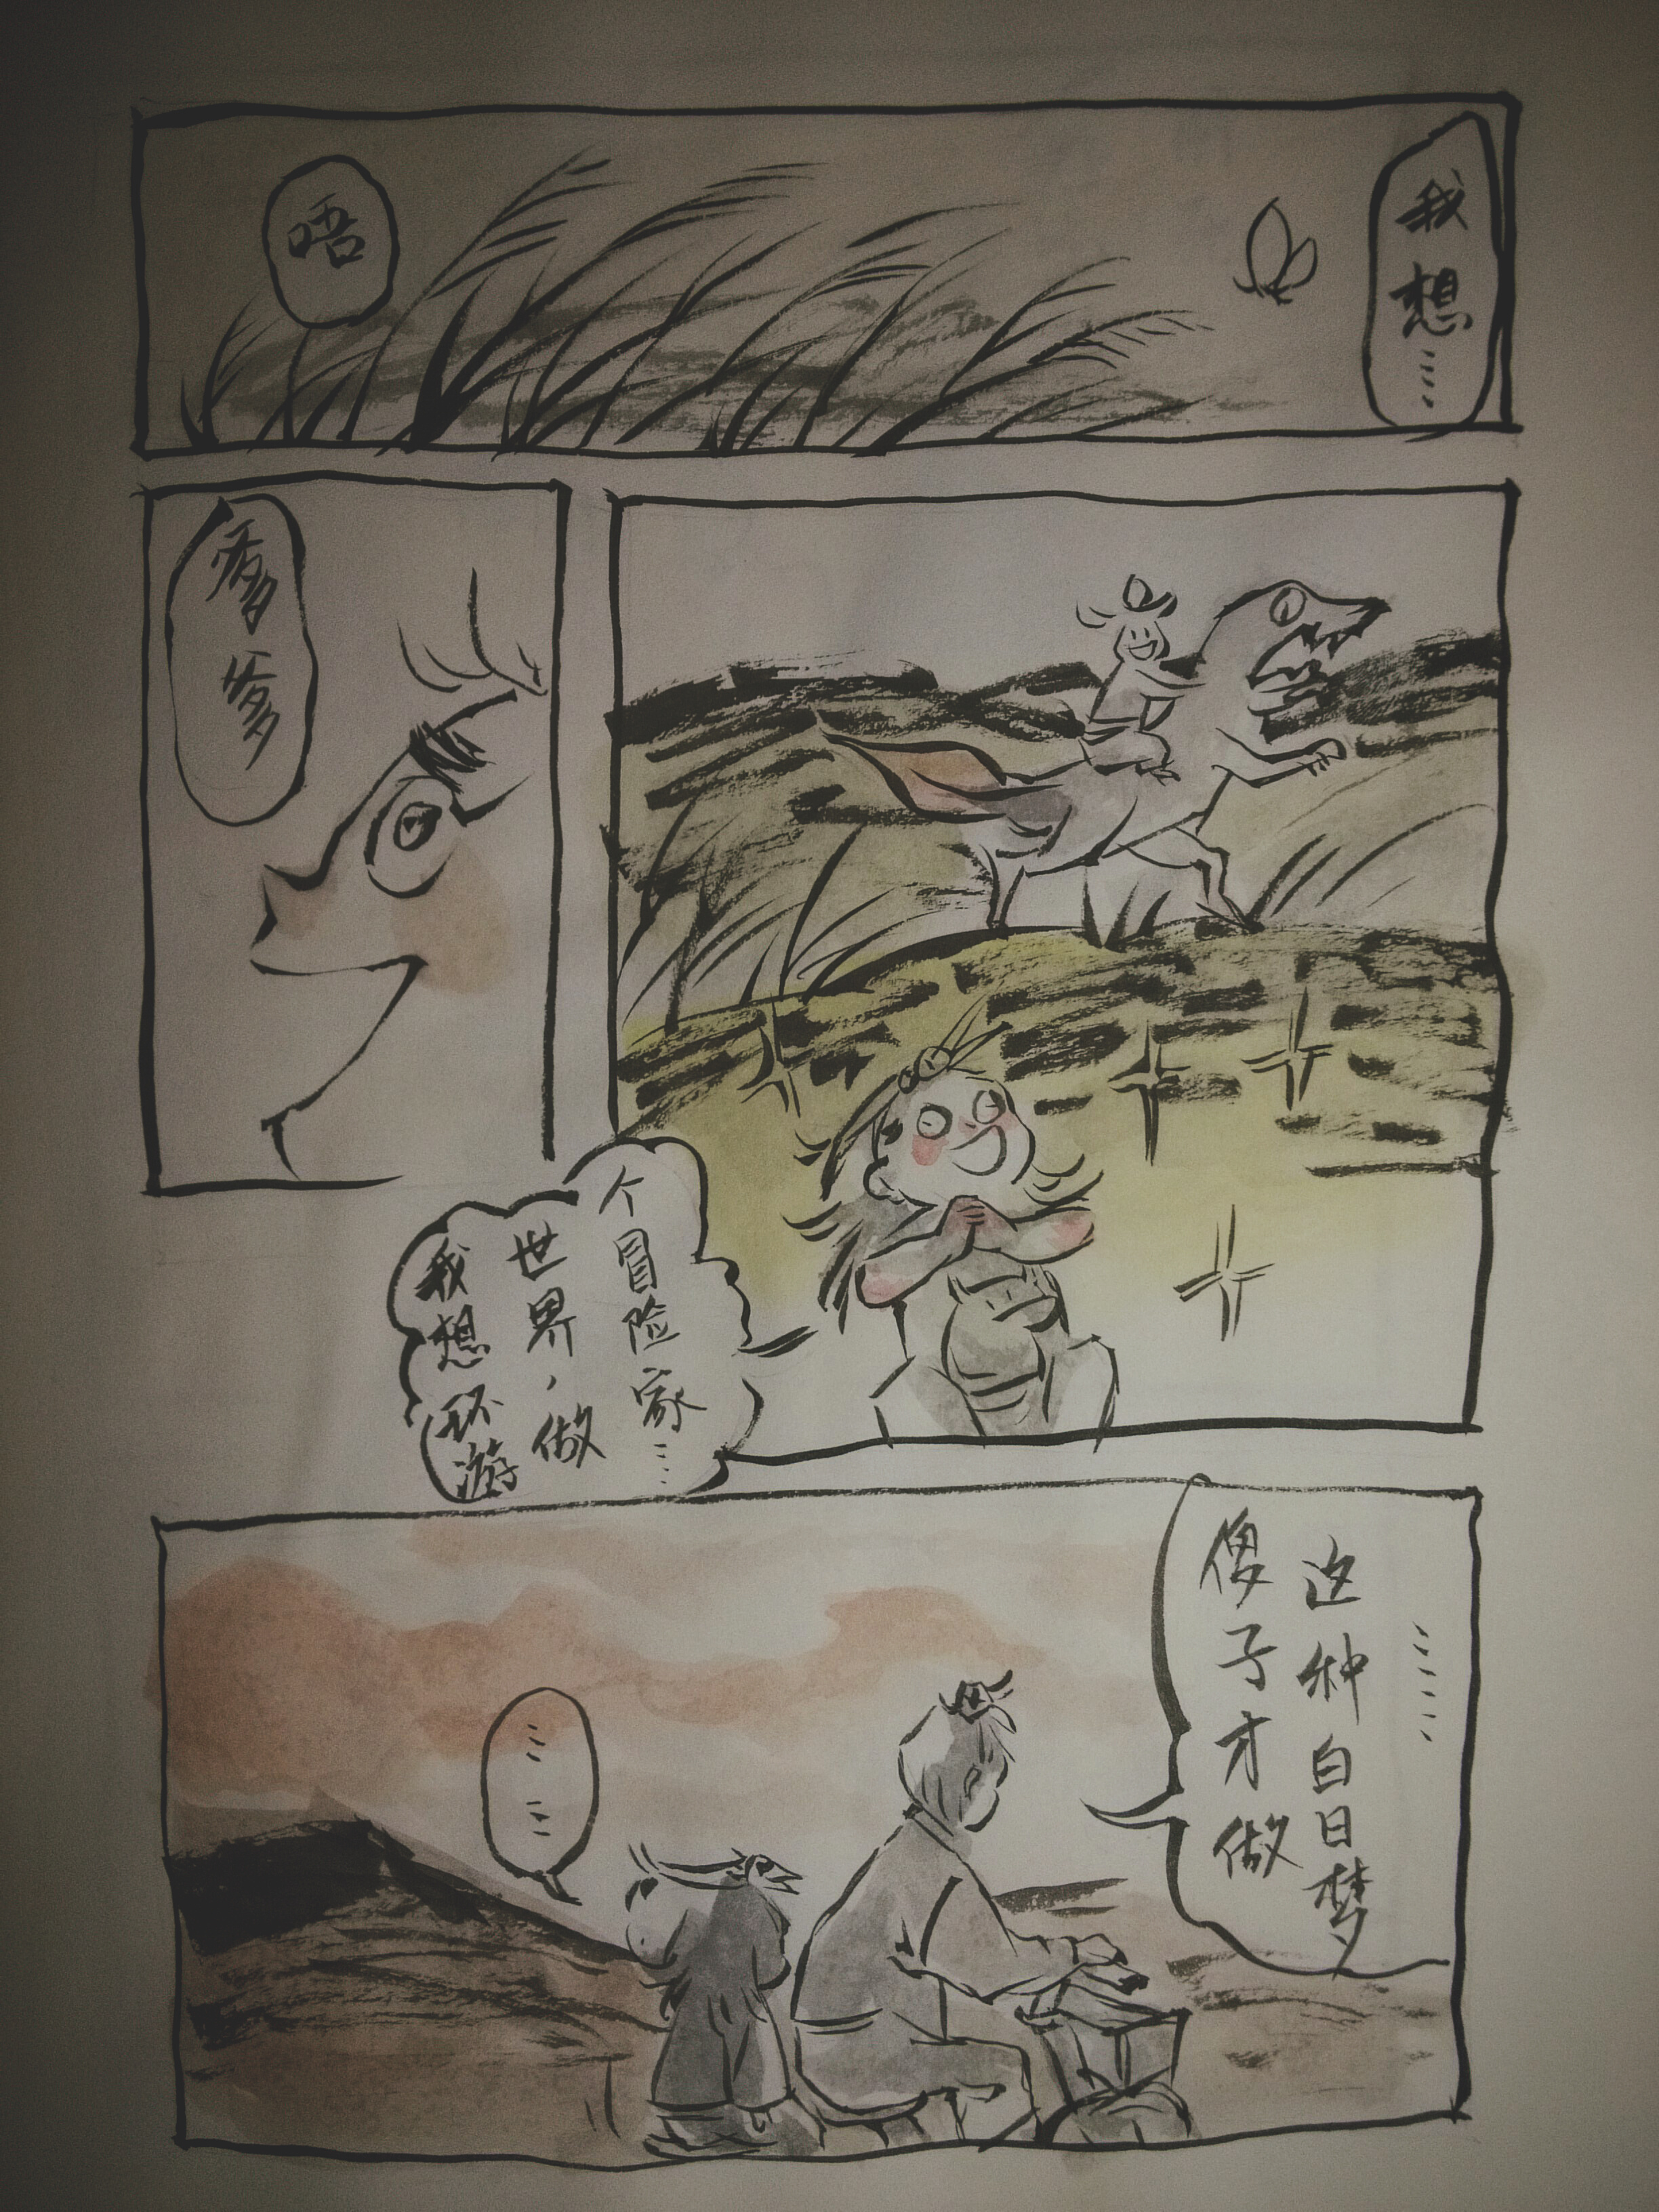 唔
我想……
爹爹
我想环游
世界，做
个冒险家……
……
这种白日梦
傻子才做
……